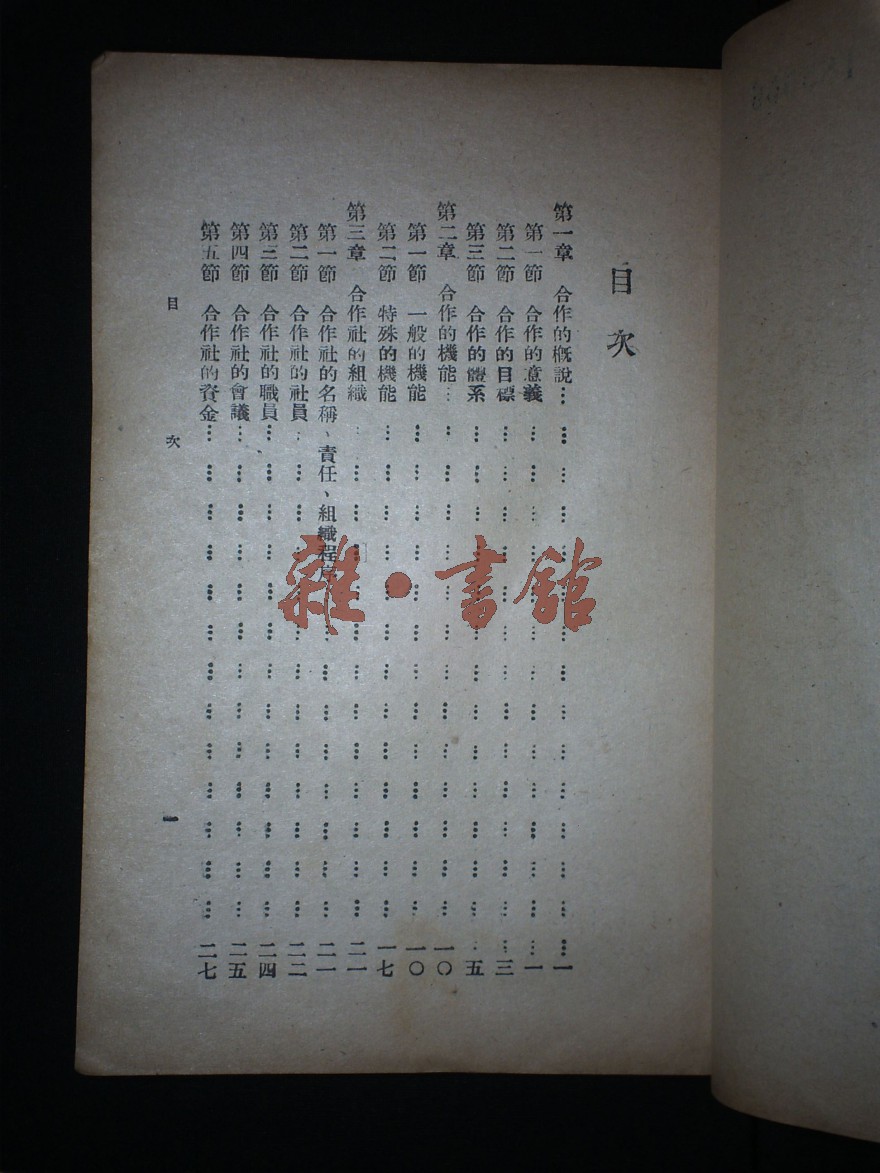 目次
第一章 合作的概說……一
第一節 合作的意義……一
第二節 合作的目標……三
第三節 合作的體系……五
第二章 合作的機能……一〇
第一節 一般的機能……一〇
第二節 特殊的機能……一七
第三章 合作社的組織……二一
第一節 合作社的名稱、責任、組織程序……二一
第二節 合作社的社員……二二
第三節 合作社的職員……二四
第四節 合作社的會議……二五
第五節 合作社的資金……二七
目次
一
雜·書館